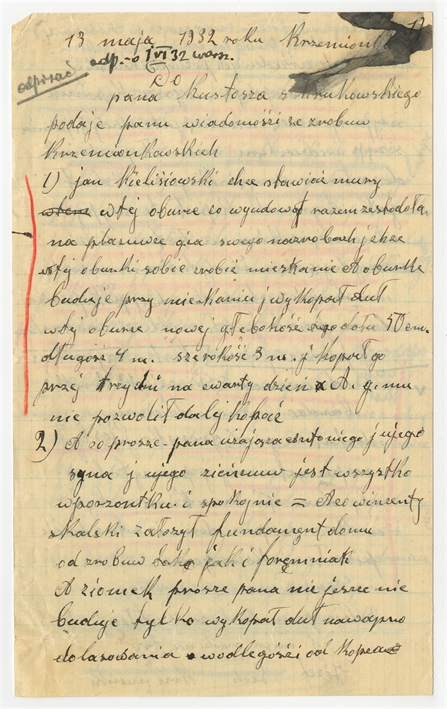 13 maja 1932 roku Krzemionki
odp. 1 VI 32 warsz.
odpisać
Do
pana Kustosza s krukowskiego
podaje panu wiadomości ze zrobuw
Krzemionkowskich
1) jan Kieliśiowski chce stawiać mury
wtej oburce co wyudowoł razem ze stodołą
na planwce swego na zrobach j chce
wtej oburki sobie zrobić mieszkanie A oburke
buduje przy mieszkaniu j wykopał duł
wtej oburce nowej głebokość dołu 50 cm.
długość 4 m. szerokość 3 m. j kopał go
przez trzy dni na cwarty dzien A. ja mu
nie pozwolił dalej kopać
2) A co prosze pana uzająca antoniego j ujego
syna j ujego zieńcuw jest wszystko
wporzontku i spokojnie = A co wincenty
skalski założył fundament domu
od zrobuw tak jak i foremniak
A ziomek prosze pana nie jeszce nie
buduje tylko wykopał duł na wapno
do lasowania wodległości od kopca